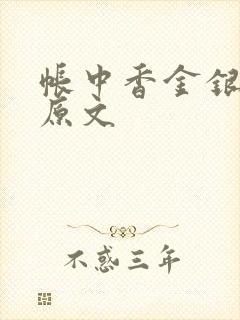 帐中香金银
原文
不惑三年